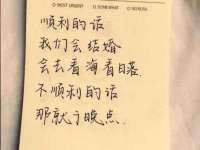 ○ MOST URGENT ○ SOMEWHAT ○ NO RUSH
顺利的话
我们会结婚
会去看海看日落.
不顺利的话
那就予晚点.